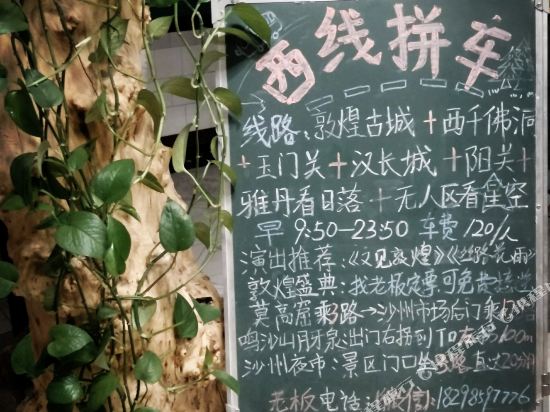 西线拼车
线路:敦煌古城+西千佛洞
+玉门关+汉长城+阳关+
雅丹看日落+无人区看星空
早9:50-23:50 车费120/人
演出推荐:《又见敦煌》《丝路花雨》
敦煌盛典:找老板定票可免费接送
莫高窟乘路→沙州市场后门乘
鸣沙山月牙泉出门右拐到T 100m
沙州夜市:景区门口坐 路直达20分
老板电话 微信:18298597776